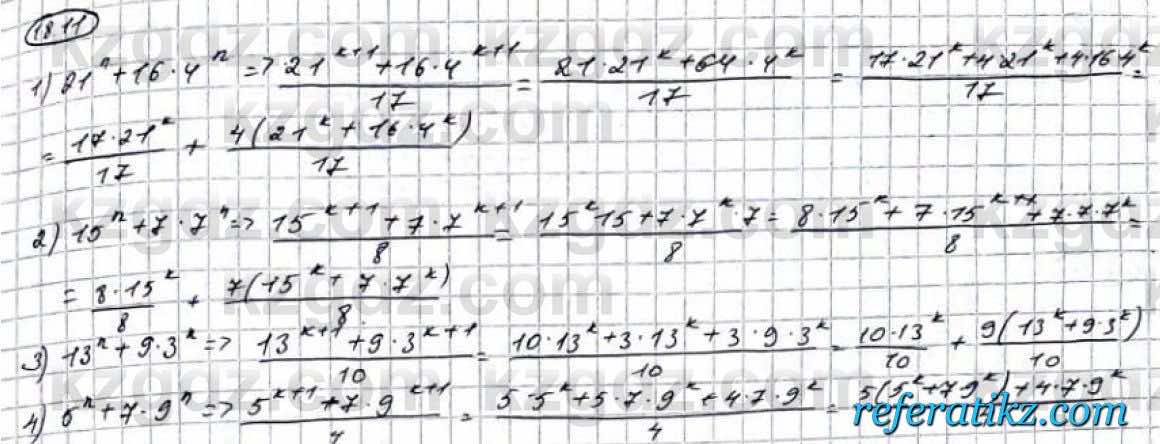 18.11
1) 21ⁿ+16·4ⁿ => 21^(k+1)+16·4^(k+1)/17 = 21·21^k+64·4^k/17 = 17·21^k+4·21^k+4·16·4^k/17 =
= 17·21^k/17 + 4(21^k+16·4^k)/17
2) 15ⁿ+7·7ⁿ => 15^(k+1)+7·7^(k+1)/8 = 15^k·15+7·7^k·7/8 = 8·15^k+7·15^(k+1)+7·7·7^k/8 =
= 8·15^k/8 + 7(15^k+7·7^k)/8
3) 13ⁿ+9·3^k => 13^(k+1)+9·3^(k+1)/10 = 10·13^k+3·13^k+3·9·3^k/10 = 10·13^k/10 + 9(13^k+9·3^k)/10
4) 5ⁿ+7·9ⁿ => 5^(k+1)+7·9^(k+1)/4 = 5·5^k+5·7·9^k+4·7·9^k/4 = 5(5^k+7·9^k)+4·7·9^k
kzgdz.com
referatikz.com